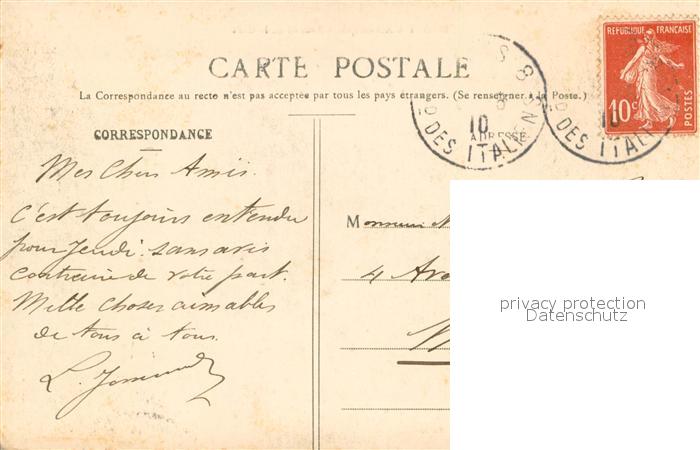 CARTE POSTALE
La Correspondance au recto n'est pas acceptée par tous les pays étrangers. (Se renseigner à la Poste.)
REPUBLIQUE FRANÇAISE
10c
POSTES
10
DES ITALIENS
10
DES ITAL
CORRESPONDANCE
ADRESSE
Mes Chers Amis.
C'est toujours entendu
pour Jeudi. sans avis
contraire de votre part.
Mille choses aimables
de tous à tous.
L.
Monsieur
4 Ave
privacy protection
Datenschutz